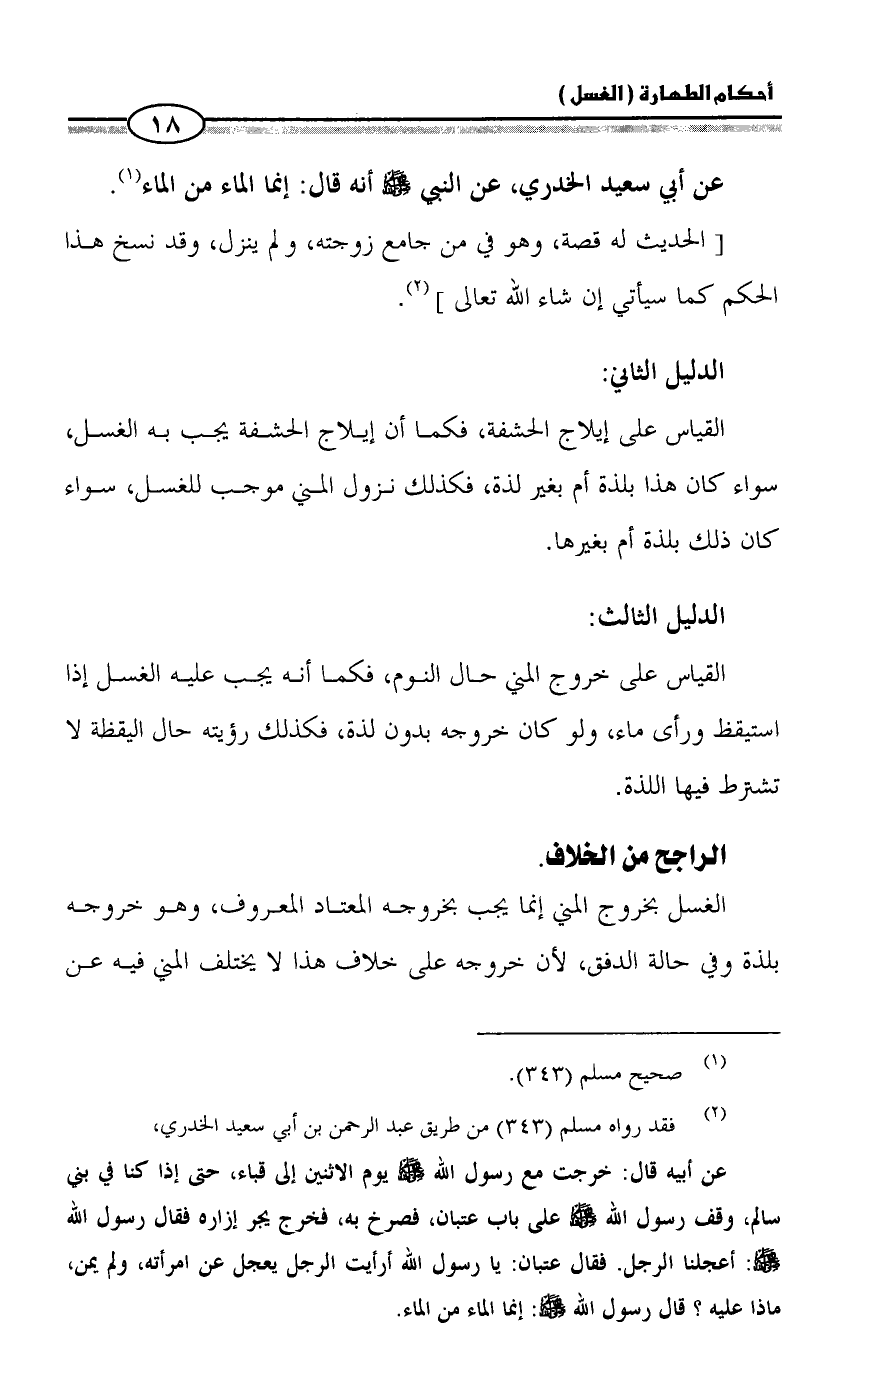 أحكام الطهارة (الغسل)
١٨
عن أبي سعيد الخدري، عن النبي ﷺ أنه قال: إنما الماء من الماء(١).
[ الحديث له قصة، وهو في من جامع زوجته، ولم ينزل، وقد نسخ هذا
الحكم كما سيأتي إن شاء الله تعالى ](٢).
الدليل الثاني:
القياس على إيلاج الحشفة، فكما أن إيلاج الحشفة يجب به الغسل،
سواء كان هذا بلذة أم بغير لذة، فكذلك نزول المني موجب للغسل، سواء
كان ذلك بلذة أم بغيرها.
الدليل الثالث:
القياس على خروج المني حال النوم، فكما أنه يجب عليه الغسل إذا
استيقظ ورأى ماء، ولو كان خروجه بدون لذة، فكذلك رؤيته حال اليقظة لا
تشترط فيها اللذة.
الراجح من الخلاف.
الغسل بخروج المني إنما يجب بخروجه المعتاد المعروف، وهو خروجه
بلذة وفي حالة الدفق، لأن خروجه على خلاف هذا لا يختلف المني فيه عن
(١) صحيح مسلم (٣٤٣).
(٢) فقد رواه مسلم (٣٤٣) من طريق عبد الرحمن بن أبي سعيد الخدري،
عن أبيه قال: خرجت مع رسول الله ﷺ يوم الاثنين إلى قباء، حتى إذا كنا في بني
سالم، وقف رسول الله ﷺ على باب عتبان، فصرخ به، فخرج يجر إزاره فقال رسول الله
ﷺ: أعجلنا الرجل. فقال عتبان: يا رسول الله أرأيت الرجل يعجل عن امرأته، ولم يمن،
ماذا عليه ؟ قال رسول الله ﷺ: إنما الماء من الماء.